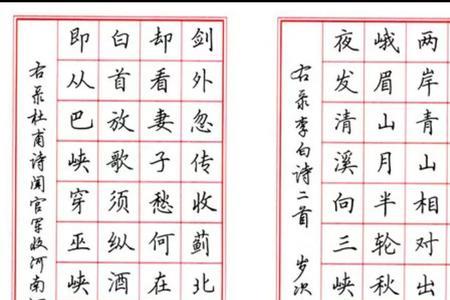 两岸青山相对出
峨眉山月半轮秋
夜发清溪向三峡
右录李白诗二首 岁次
剑外忽传收蓟北
却看妻子愁何在
白首放歌须纵酒
即从巴峡穿巫峡
右录杜甫诗闻官军收河南